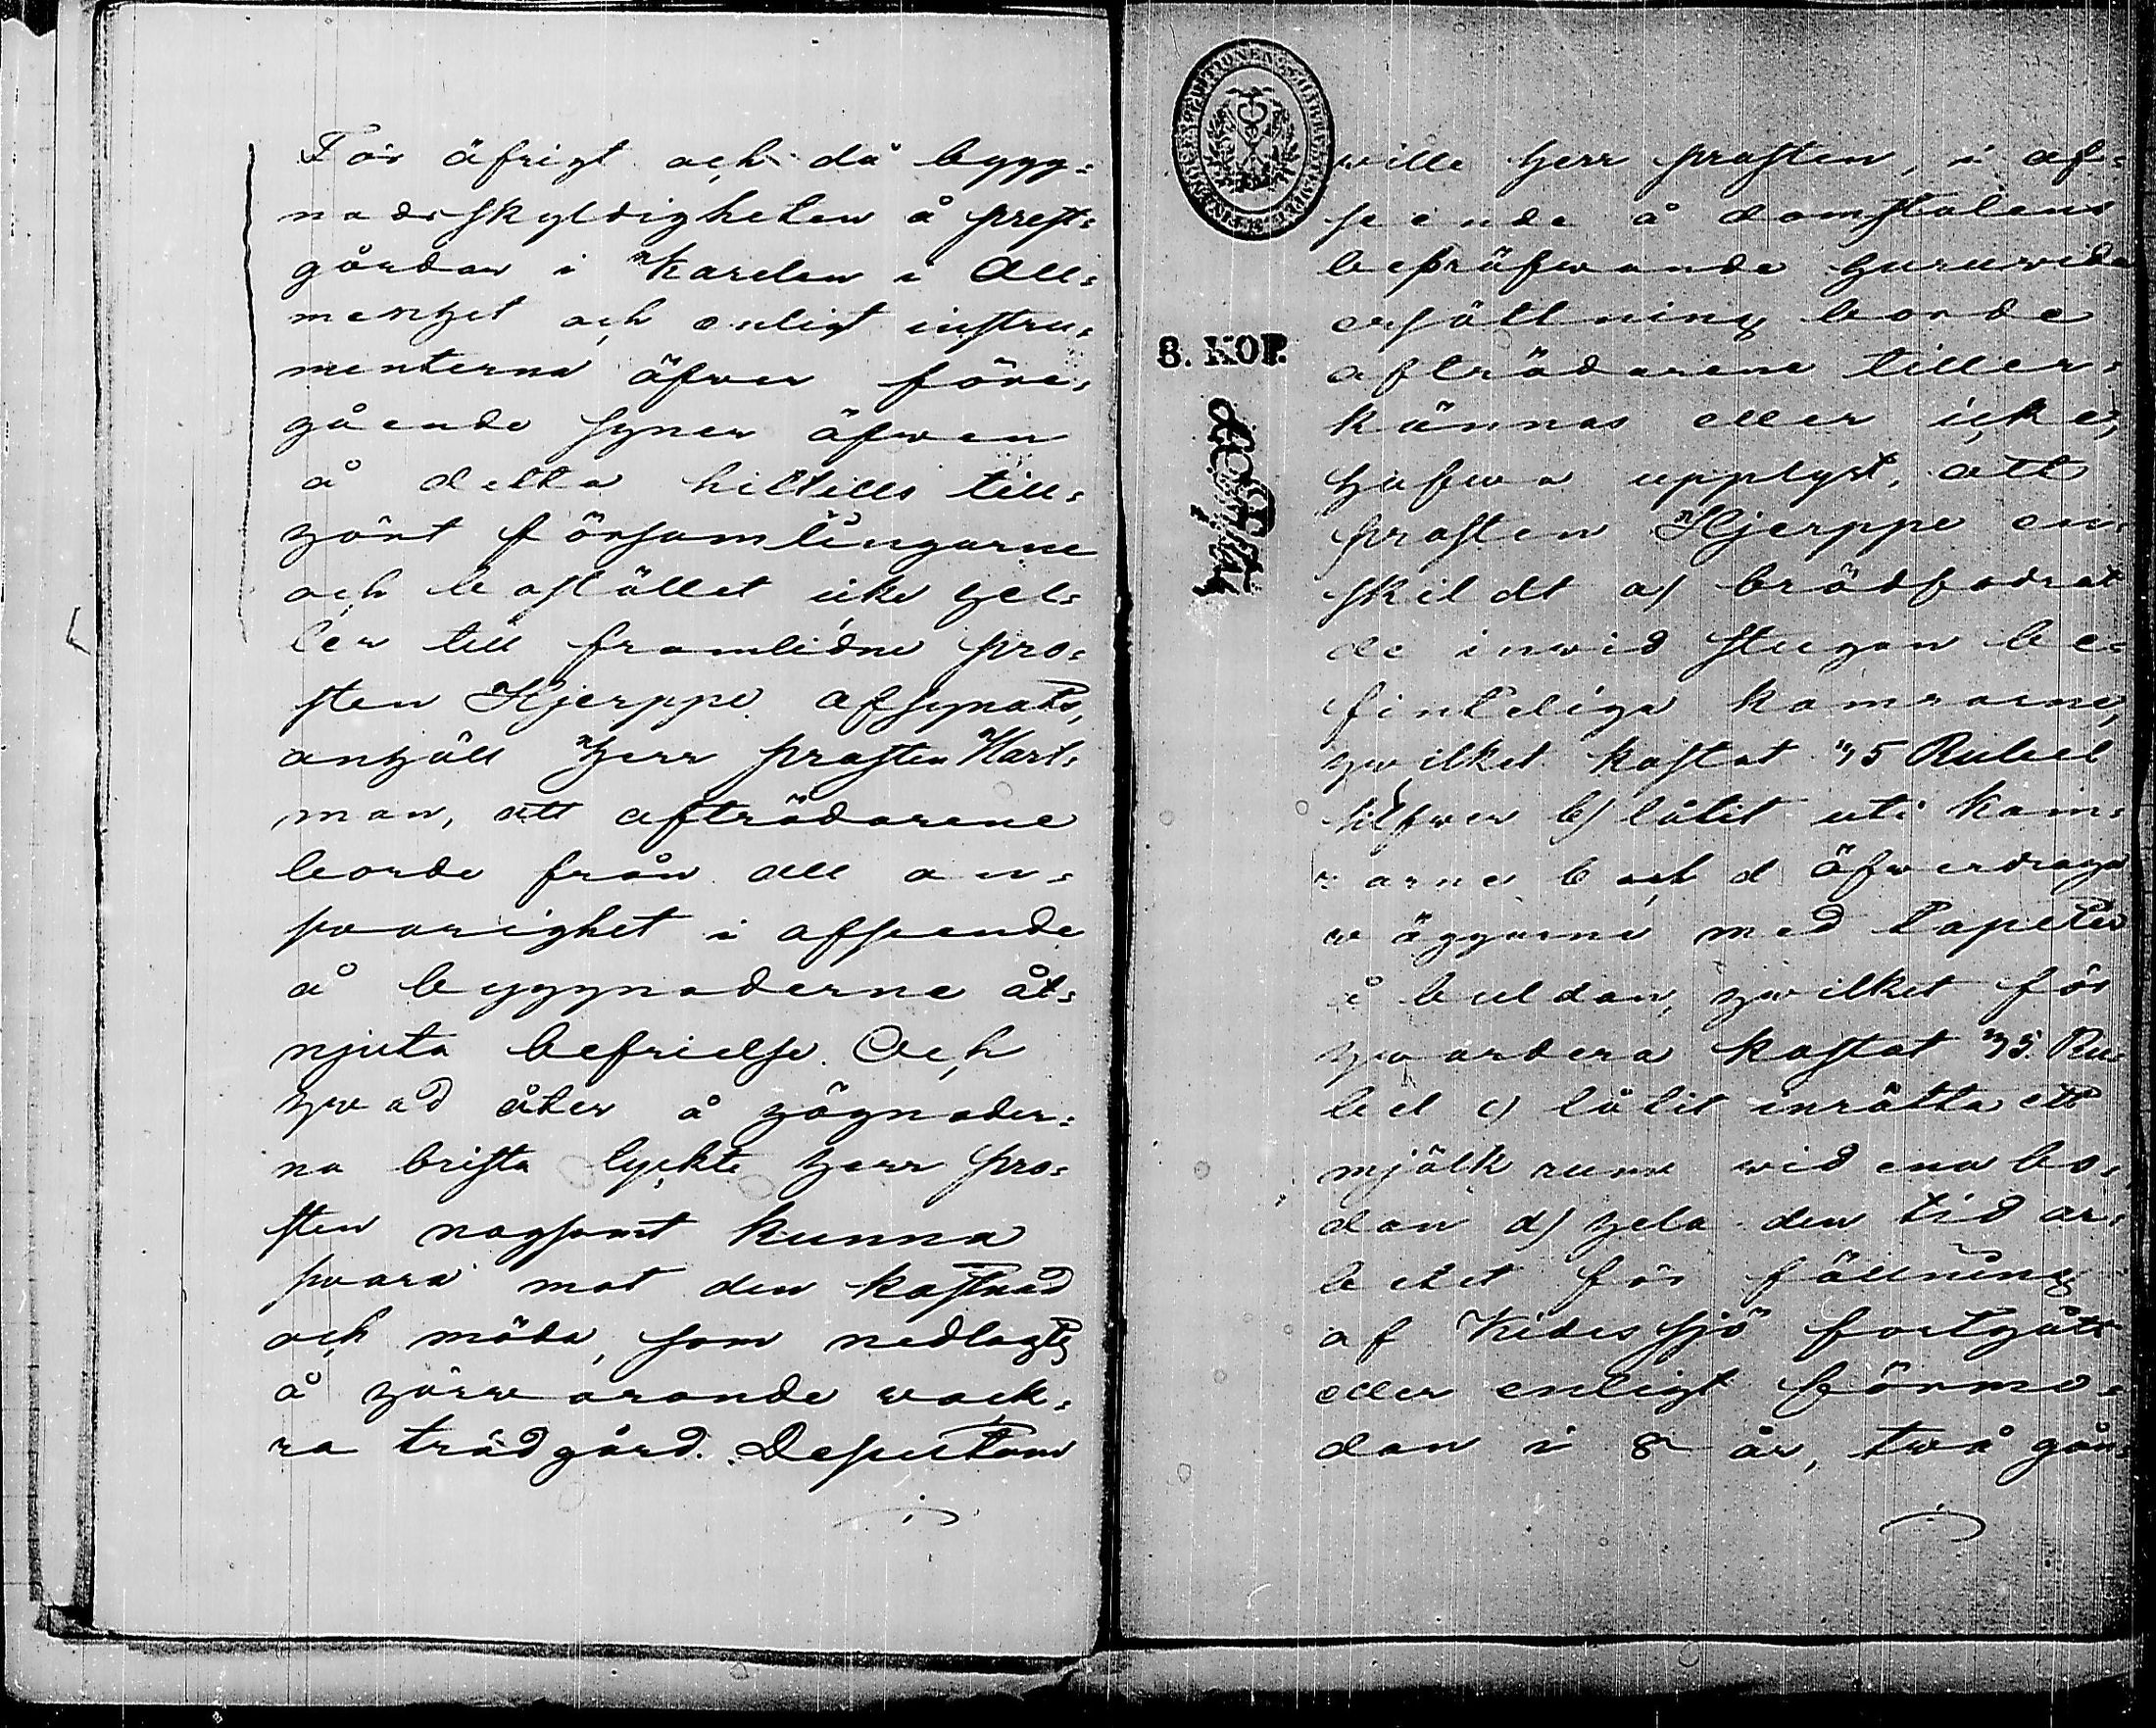 För öfrigt och då bygg=
nadsskyldigheten å prest=
gårdar i Karelen i All=
menhet och enligt instru=
menterna öfver före=
gående syner äfven
å detta hittills till=
hört församlingarne
och bostället icke hel=
ler till framlidne pro=
sten Hjerppe afsynats,
anhöll Herr prosten Hart=
man, att afträdarene
borde från all an=
svarighet i afseende
å byggnaderne åt=
njuta befrielse. Och
hvad åter å hägnader=
na brista lyckte Herr pro=
sten nogsamt kunna
svara mot den kostnad
och möda, som nedlagts
å härvarande vack=
ra trädgård. Dessutom
ville Herr prosten, i af=
seende å domstolens
bepröfwande huruwida
ersättning borde
afträdarene tiller=
kännas eller icke,
hafwa upplyst, att
prosten Hjerppe en=
skildt a) brädfodrat
de inwid stugan be=
finteliga kamrarne,
hwilket kostat 75 Rubel
silfwer b) låtit uti kam=
rarne b och d öfwerdraga
wäggarne med tapeter
å buldan, hwilket för
hwardera kostat 75 Ru=
bel c) låtit inrätta ett
mjölk rum wid ena bo=
dan d) hela den tid ar=
betet för fällning
af Kides sjö fortgått
eller enligt förmo=
dan i 8 år, två gån=
8. KOP.